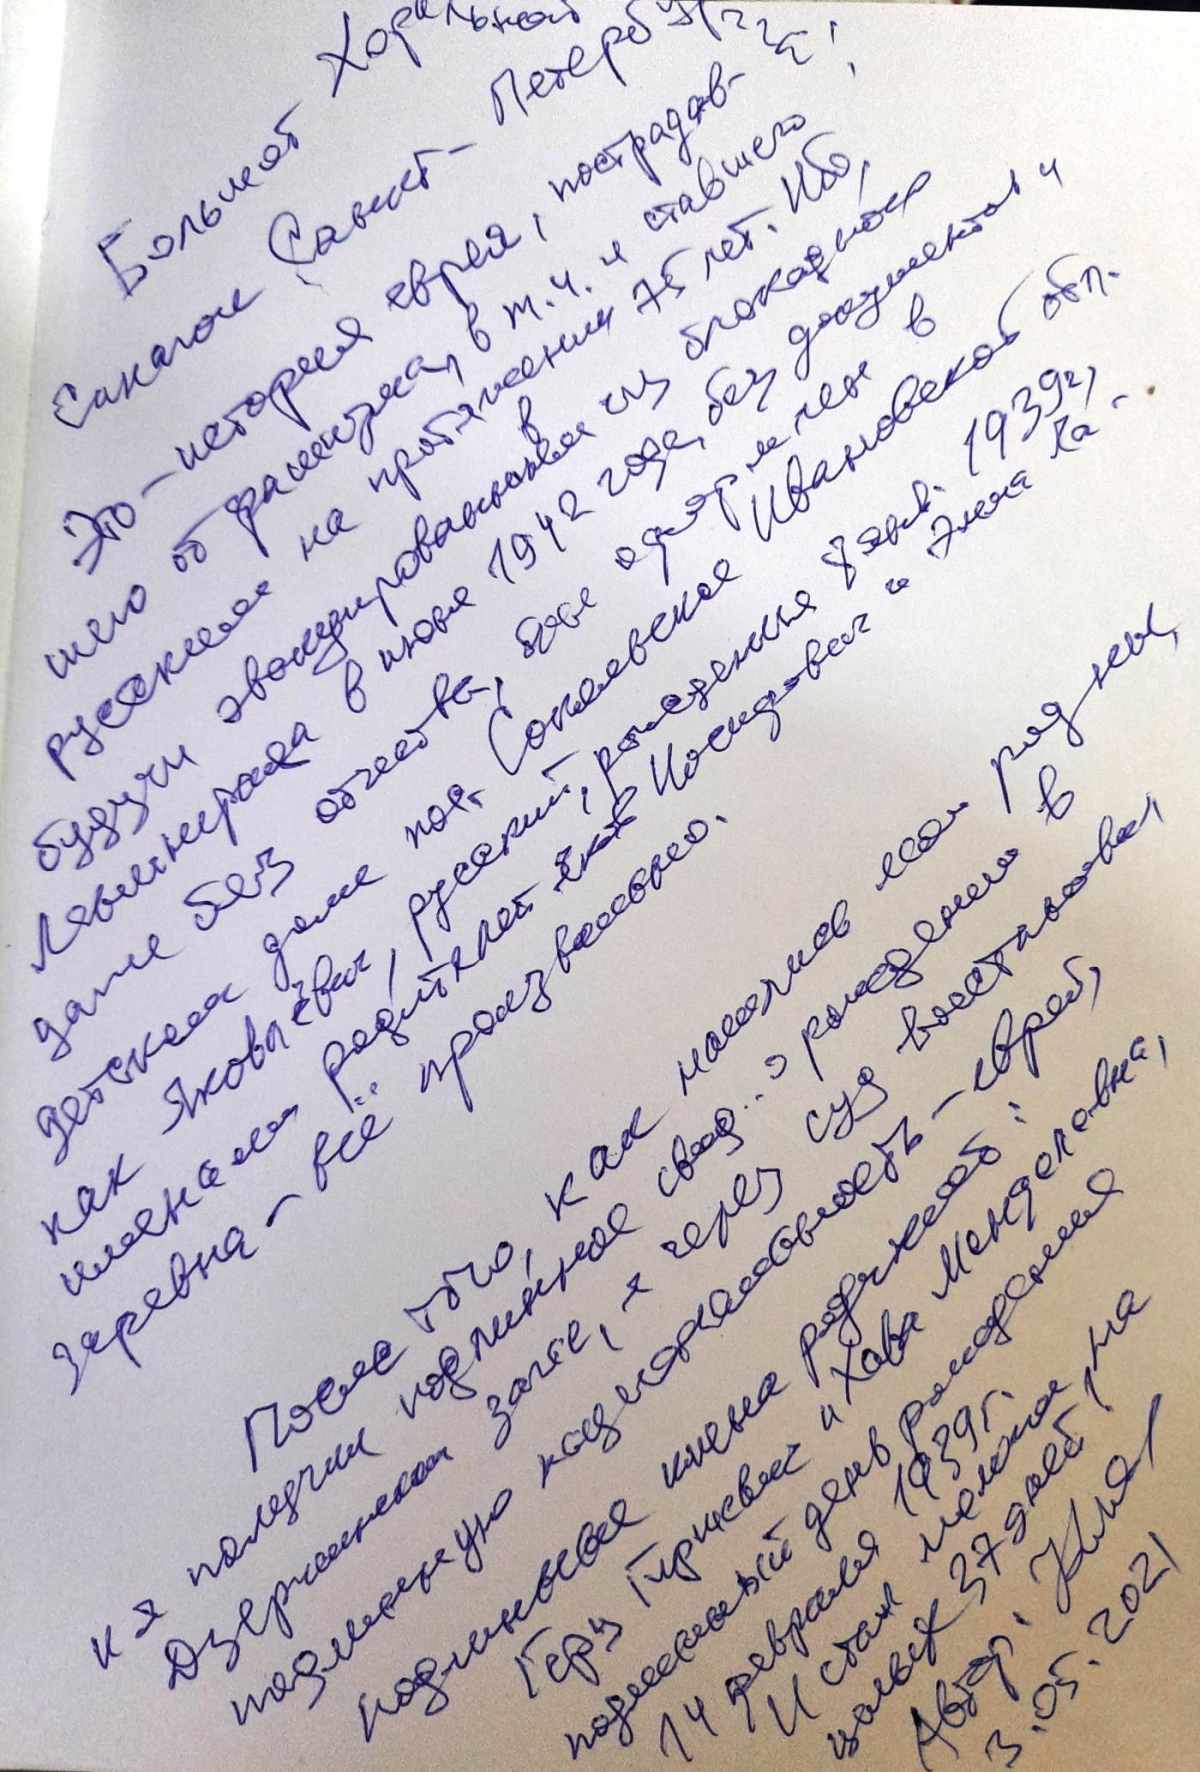 Большой Хоральной
Синагоге Санкт-Петербурга!
Это - история еврея, пострадав-
шего от фашизма, в т.ч. и ставшего
русским на протяжении 75 лет. Ибо,
будучи эвакуированным из блокадного
Ленинграда в июле 1942 года, без документов и
даже без отчества, был одар м чем в
детском доме пос. Сокольское Ивановской обл.
как Яковлевич, русский, рождения 8 янв. 1939г,
именами родителей Яков Иосифович и Эмма Ла-
заревна - всё произвольно.
После того, как нашлись мои родные,
и я получил подлинное свид. о рождении в
Дзержинском загсе, я через суд восстановил
подлинную национальность - еврей,
подлинные имена родителей:
Герц Гиршевич и Хава Менделевна,
подлинный день рождения
14 февраля 1939г.
И стал моложе на
целых 37 дней!
Автор:
3.05.2021